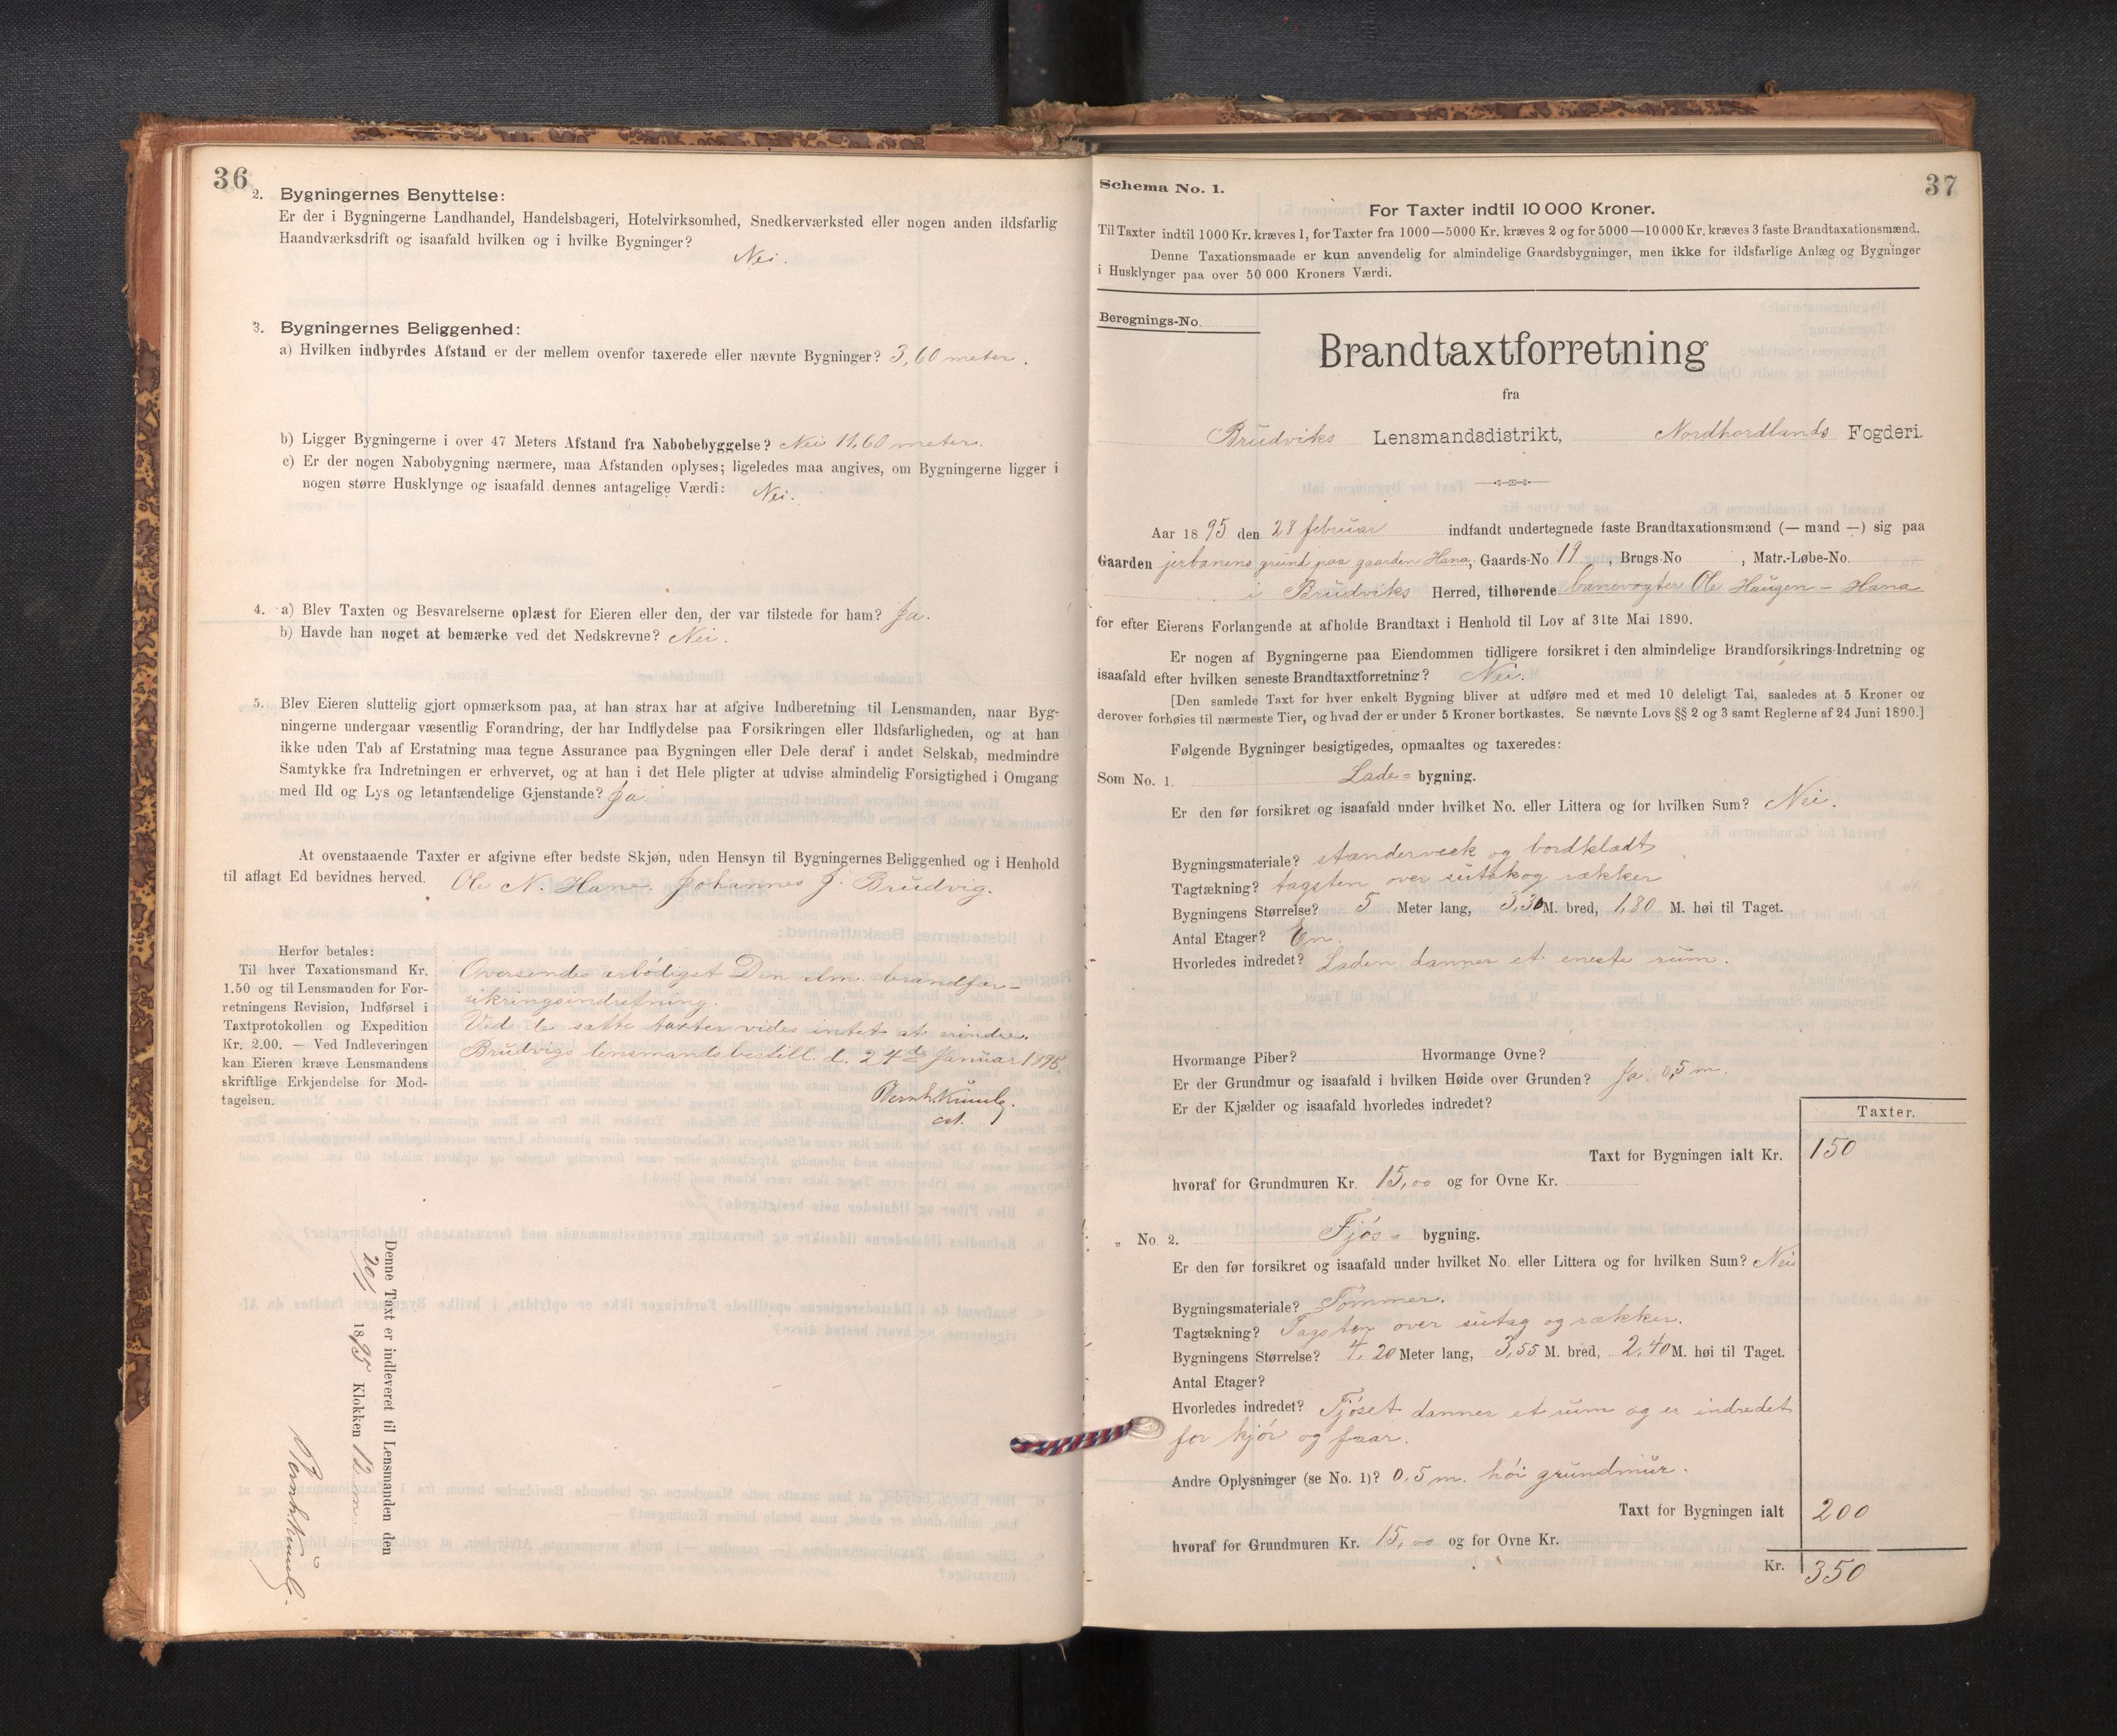 36
2. Bygningernes Benyttelse:
Er der i Bygningerne Landhandel, Handelsbageri, Hotelvirksomhed, Snedkerværksted eller nogen anden ildsfarlig
Haandværksdrift og isaafald hvilken og i hvilke Bygninger?
Nei.
3. Bygningernes Beliggenhed:
a) Hvilken indbyrdes Afstand er der mellem ovenfor taxerede eller nævnte Bygninger? 3,60 meter.
b) Ligger Bygningerne i over 47 Meters Afstand fra Nabobebyggelse? Nei 11,60 meter.
c) Er der nogen Nabobygning nærmere, maa Afstanden oplyses; ligeledes maa angives, om Bygningerne ligger i
nogen større Husklynge og isaafald dennes antagelige Værdi: Nei.
4. a) Blev Taxten og Besvarelserne oplæst for Eieren eller den, der var tilstede for ham? Ja.
b) Havde han noget at bemærke ved det Nedskrevne? Nei.
5. Blev Eieren sluttelig gjort opmærksom paa, at han strax har at afgive Indberetning til Lensmanden, naar Byg-
ningerne undergaar væsentlig Forandring, der har Indflydelse paa Forsikringen eller Ildsfarligheden, og at han
ikke uden Tab af Erstatning maa tegne Assurance paa Bygningen eller Dele deraf i andet Selskab, medmindre
Samtykke fra Indretningen er erhvervet, og at han i det Hele pligter at udvise almindelig Forsigtighed i Omgang
med Ild og Lys og letantændelige Gjenstande? Ja
At ovenstaaende Taxter er afgivne efter bedste Skjøn, uden Hensyn til Bygningernes Beliggenhed og i Henhold
til aflagt Ed bevidnes herved. Ole N. Hane. Johannes J. Brudvig.
Herfor betales:
Til hver Taxationsmand Kr.
1.50 og til Lensmanden for For-
retningens Revision, Indførsel i
Taxtprotokollen og Expedition
Kr. 2.00. — Ved Indleveringen
kan Eieren kræve Lensmandens
skriftlige Erkjendelse for Mod-
tagelsen.
Oversendes ærbödigst Den alm. brandfor-
sikringsindretning.
Ved de satte taxter vides intet at erindre.
Brudvigs lensmandsbestill. d. 24de Januar 1895.
Denne Taxt er indleveret til Lensmanden den
20/1 1895 Klokken 12 m.
37
Schema No. 1.
For Taxter indtil 10 000 Kroner.
Til Taxter indtil 1000 Kr. kræves 1, for Taxter fra 1000—5000 Kr. kræves 2 og for 5000—10000 Kr. kræves 3 faste Brandtaxationsmænd.
Denne Taxationsmaade er kun anvendelig for almindelige Gaardsbygninger, men ikke for ildsfarlige Anlæg og Bygninger
i Husklynger paa over 50 000 Kroners Værdi.
Beregnings-No.
Brandtaxtforretning
fra
Brudviks Lensmandsdistrikt, Nordhordlands Fogderi.
Aar 1895 den 28 februar indfandt undertegnede faste Brandtaxationsmænd (— mand —) sig paa
Gaarden jerbanens grund paa gaarden Hana, Gaards-No 19, Brugs-No , Matr.-Løbe-No.
i Brudviks Herred, tilhørende banevogter Ole Haugen - Hana
for efter Eierens Forlangende at afholde Brandtaxt i Henhold til Lov af 31te Mai 1890.
Er nogen af Bygningerne paa Eiendommen tidligere forsikret i den almindelige Brandforsikrings-Indretning og
isaafald efter hvilken seneste Brandtaxtforretning? Nei.
[Den samlede Taxt for hver enkelt Bygning bliver at udføre med et med 10 deleligt Tal, saaledes at 5 Kroner og
derover forhøies til nærmeste Tier, og hvad der er under 5 Kroner bortkastes. Se nævnte Lovs §§ 2 og 3 samt Reglerne af 24 Juni 1890.]
Følgende Bygninger besigtigedes, opmaaltes og taxeredes:
Som No. 1. Lade- bygning.
Er den før forsikret og isaafald under hvilket No. eller Littera og for hvilken Sum? Nei.
Bygningsmateriale? stænderverk og bordklædt
Tagtækning? tagsten over sutak og rækker
Bygningens Størrelse? 5 Meter lang, 3,30 M. bred, 1,80 M. høi til Taget.
Antal Etager? En.
Hvorledes indredet? Laden danner et eneste rum.
Hvormange Piber? Hvormange Ovne?
Er der Grundmur og isaafald i hvilken Høide over Grunden? Ja. 0,5 m.
Er der Kjælder og isaafald hvorledes indredet?
Taxter.
Taxt for Bygningen ialt Kr. 150
hvoraf for Grundmuren Kr. 15,00 og for Ovne Kr.
„ No. 2. Fjös- bygning.
Er den før forsikret og isaafald under hvilket No. eller Littera og for hvilken Sum? Nei
Bygningsmateriale? Tömmer.
Tagtækning? Tagsten over sutag og rækker.
Bygningens Størrelse? 4,20 Meter lang, 3,55 M. bred, 2,40 M. høi til Taget.
Antal Etager?
Hvorledes indredet? Fjöset danner et rum og er indredet
for kjör og faar.
Andre Oplysninger (se No. 1)? 0,5 m. höi grundmur.
Taxt for Bygningen ialt 200
hvoraf for Grundmuren Kr. 15,00 og for Ovne Kr.
Kr. 350